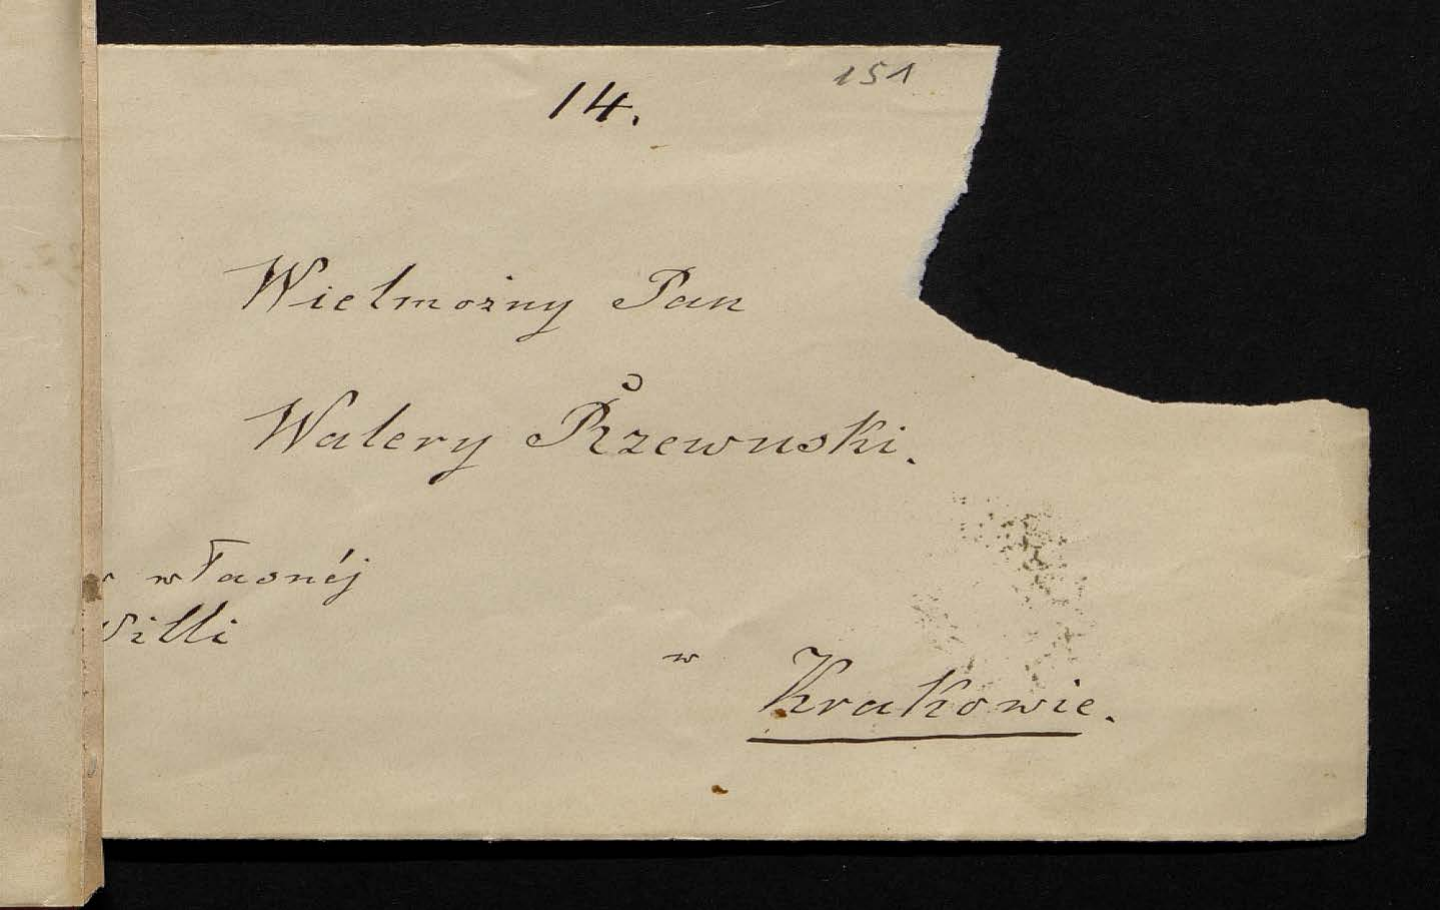 151
14.
Wielmożny Pan
Walery Rzewuski.
w własnéj
Willi
w Krakowie.